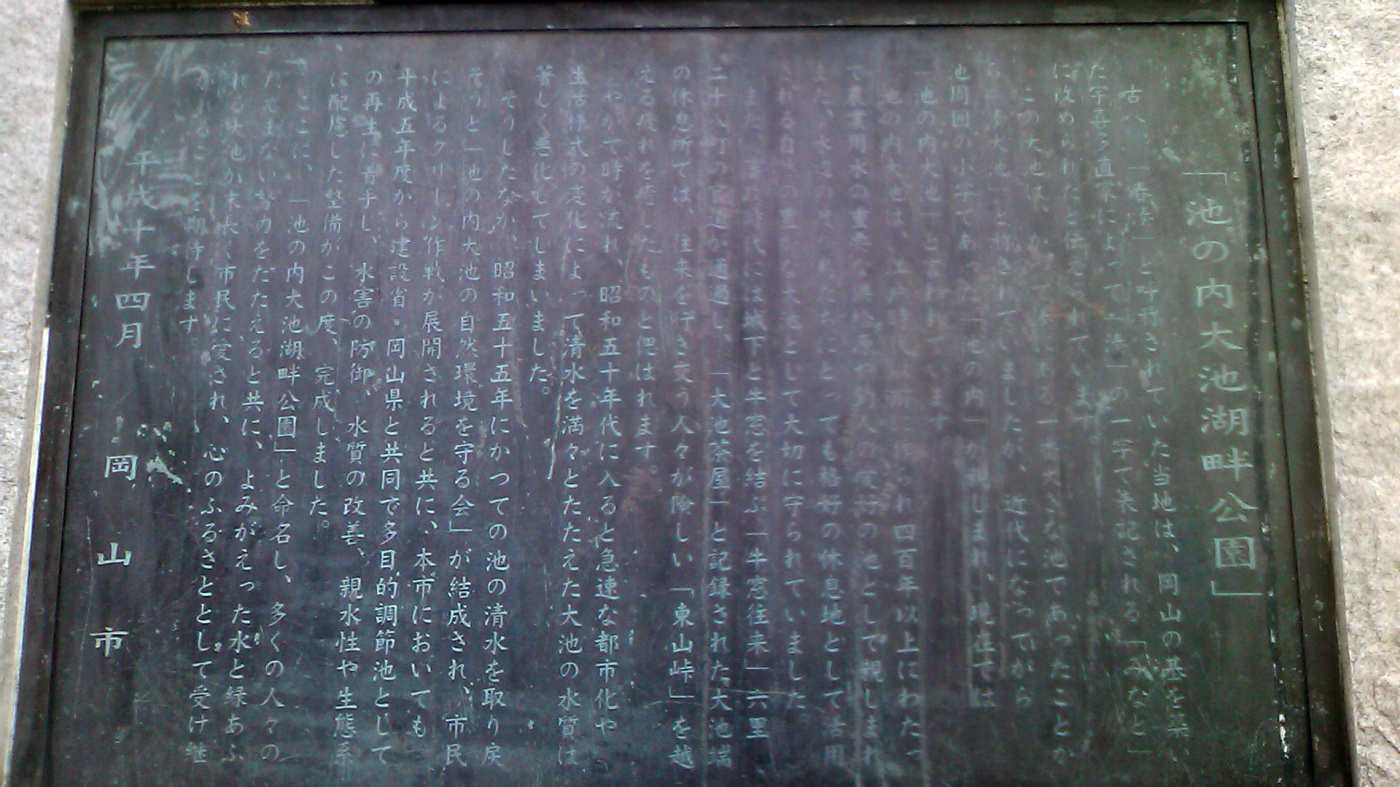 「池の内大池湖畔公園」
古くは、「 」と呼称されていた当地は、岡山の基を築い
た宇喜多直家によって「湊」の一字で表記される「みなと」
に改められたと伝えられています。
この大池は、かつて にある一番大きな池であったことか
ら「 大池」と称されていましたが、近代になってから
池周囲の小字であった「池の内」が親しまれ、現在では
「池の内大池」と言われています。
池の内大池は、 四百年以上にわたっ
て農業用水の重要な 人々の 池として親しまれ
また、水辺の にとっても格好の休息地として活用
される自然の豊かな大池として大切に守られていました。
また、 時代には城下と牛窓を結ぶ「牛窓往来」六里
二十八丁の街道が通過し、「大池茶屋」と記録された大池端
の休息所では、往来を行き交う人々が険しい「東山峠」を越
える疲れを癒したものと偲ばれます。
やがて時が流れ、昭和五十年代に入ると急速な都市化や
生活様式の変化によって清水を満々とたたえた大池の水質は
著しく悪化してしまいました。
そうしたなか、昭和五十五年にかつての池の清水を取り戻
そうと「池の内大池の自然環境を守る会」が結成され、市民
によるクリーン作戦が展開されると共に、本市においても
平成五年度から建設省・岡山県と共同で多目的調節池として
の再生に着手し、水害の防御、水質の改善、親水性や生態系
に配慮した整備がこの度、完成しました。
ここに、「池の内大池湖畔公園」と命名し、多くの人々の
たゆまない努力をたたえると共に、よみがえった水と緑あふ
れる大池が末永く市民に愛され、心のふるさととして受け継
がれることを期待します。
平成十年四月
岡山市